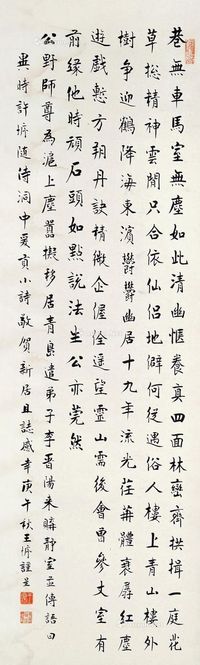 巷無車馬室無塵如此清幽愜養真四面林巒齊拱揖一庭花
草總精神雲間只合依仙侣地僻何從遇俗人樓上青山樓外
樹爭迎鶴降海東濱鬱鬱幽居十九年流光荏苒體衰孱紅塵
遊戲慙方朔丹訣精微企偓佺遥望靈山需後會畱參丈室有
前緣他時頑石頭如點說法生公亦莞然
公野師尊為滬上塵囂擬移居青島遣弟子李晋陽來瞞靜室並傳語曰
異時許擠隨侍洞中爰貢小詩敬賀新居且誌感幸庚午秋王擠謹呈